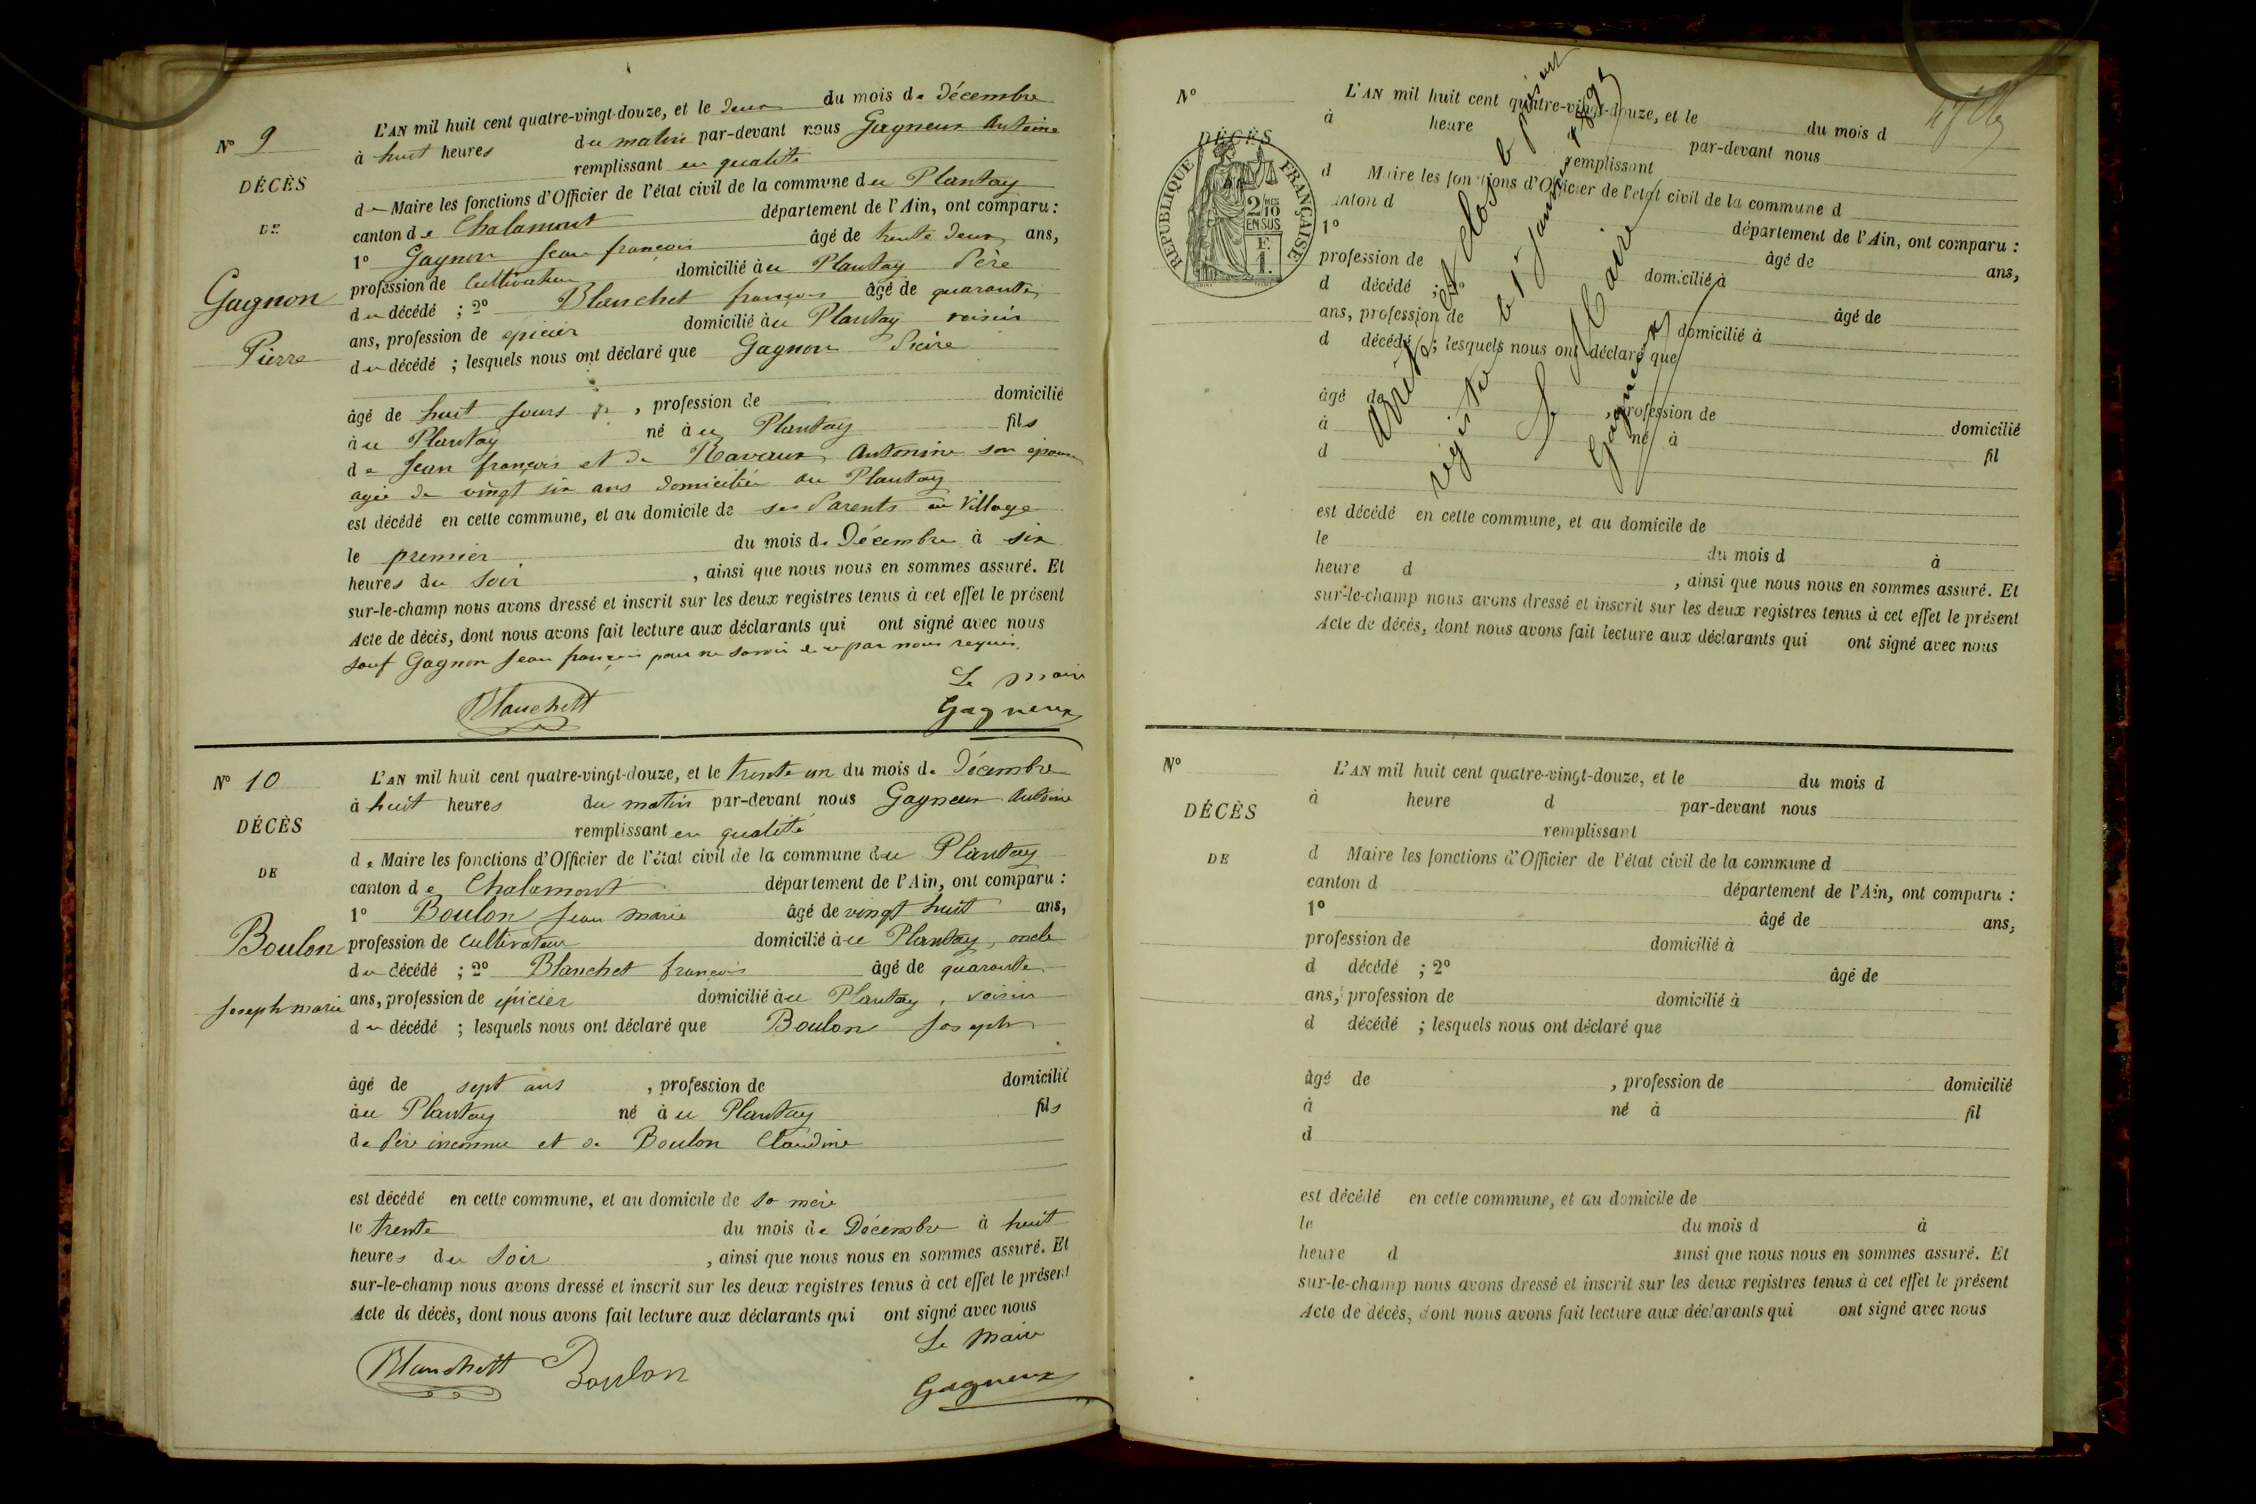 N° 9
DÉCÈS
DE
Gagnon
Pierre
L'AN mil huit cent quatre-vingt-douze, et le deux du mois de Décembre
à huit heures du matin par-devant nous Gagneux Antoine
remplissant en qualité
de Maire les fonctions d'Officier de l'état civil de la commune du Plantay
canton de Chalamont département de l'Ain, ont comparu :
1° Gagnon Jean françois âgé de trente deux ans,
profession de cultivateur domicilié au Plantay Père
du décédé ; 2° Blanchet françois âgé de quarante
ans, profession de épicier domicilié au Plantay voisin
du décédé ; lesquels nous ont déclaré que Gagnon Pierre
âgé de huit jours , profession de domicilié
au Plantay né au Plantay fils
de Jean françois et de Ravaux Antonine son épouse
agée de vingt six ans domiciliée au Plantay
est décédé en cette commune, et au domicile de ses Parents au Village
le premier du mois de Décembre à six
heures du soir , ainsi que nous nous en sommes assuré. Et
sur-le-champ nous avons dressé et inscrit sur les deux registres tenus à cet effet le présent
Acte de décès, dont nous avons fait lecture aux déclarants qui ont signé avec nous
sauf Gagnon Jean françois pour ne savoir de ce par nous requis.
Le Maire
Blanchett Gagneux
N° 10
DÉCÈS
DE
Boulon
Joseph marie
L'AN mil huit cent quatre-vingt-douze, et le trente un du mois de Décembre
à huit heures du matin par-devant nous Gagneux Antoine
remplissant en qualité
de Maire les fonctions d'Officier de l'état civil de la commune du Plantay
canton de Chalamont département de l'Ain, ont comparu :
1° Boulon Jean marie âgé de vingt huit ans,
profession de cultivateur domicilié au Plantay, oncle
du décédé ; 2° Blanchet françois âgé de quarante
ans, profession de épicier domicilié au Plantay, voisin
du décédé ; lesquels nous ont déclaré que Boulon Joseph
âgé de sept ans , profession de domicilié
au Plantay né au Plantay fils
de Père inconnu et de Boulon Claudine
est décédé en cette commune, et au domicile de sa mère
le trente du mois de Décembre à huit
heures du soir , ainsi que nous nous en sommes assuré. Et
sur-le-champ nous avons dressé et inscrit sur les deux registres tenus à cet effet le présent
Acte de décès, dont nous avons fait lecture aux déclarants qui ont signé avec nous
Le Maire
Blanchett Boulon Gagneux
N°
DÉCÈS
RÉPUBLIQUE FRANÇAISE
2/10 EN SUS
F. 1.
L'AN mil huit cent quatre-vingt-douze, et le du mois d
à heure par-devant nous
remplissant
d Maire les fonctions d'Officier de l'état civil de la commune d
canton d département de l'Ain, ont comparu :
1° âgé de ans,
profession de domicilié à
d décédé ; 2° âgé de
ans, profession de domicilié à
d décédé ; lesquels nous ont déclaré que
âgé de , profession de domicilié
à né à fil
d
est décédé en cette commune, et au domicile de
le du mois d à
heure d , ainsi que nous nous en sommes assuré. Et
sur-le-champ nous avons dressé et inscrit sur les deux registres tenus à cet effet le présent
Acte de décès, dont nous avons fait lecture aux déclarants qui ont signé avec nous
Arrêté et clos le présent
registre le 1er Janvier 1893
Le Maire
Gagneux
N°
DÉCÈS
DE
L'AN mil huit cent quatre-vingt-douze, et le du mois d
à heure d par-devant nous
remplissant
d Maire les fonctions d'Officier de l'état civil de la commune d
canton d département de l'Ain, ont comparu :
1° âgé de ans,
profession de domicilié à
d décédé ; 2° âgé de
ans, profession de domicilié à
d décédé ; lesquels nous ont déclaré que
âgé de , profession de domicilié
à né à fil
d
est décédé en cette commune, et au domicile de
le du mois d à
heure d ainsi que nous nous en sommes assuré. Et
sur-le-champ nous avons dressé et inscrit sur les deux registres tenus à cet effet le présent
Acte de décès, dont nous avons fait lecture aux déclarants qui ont signé avec nous